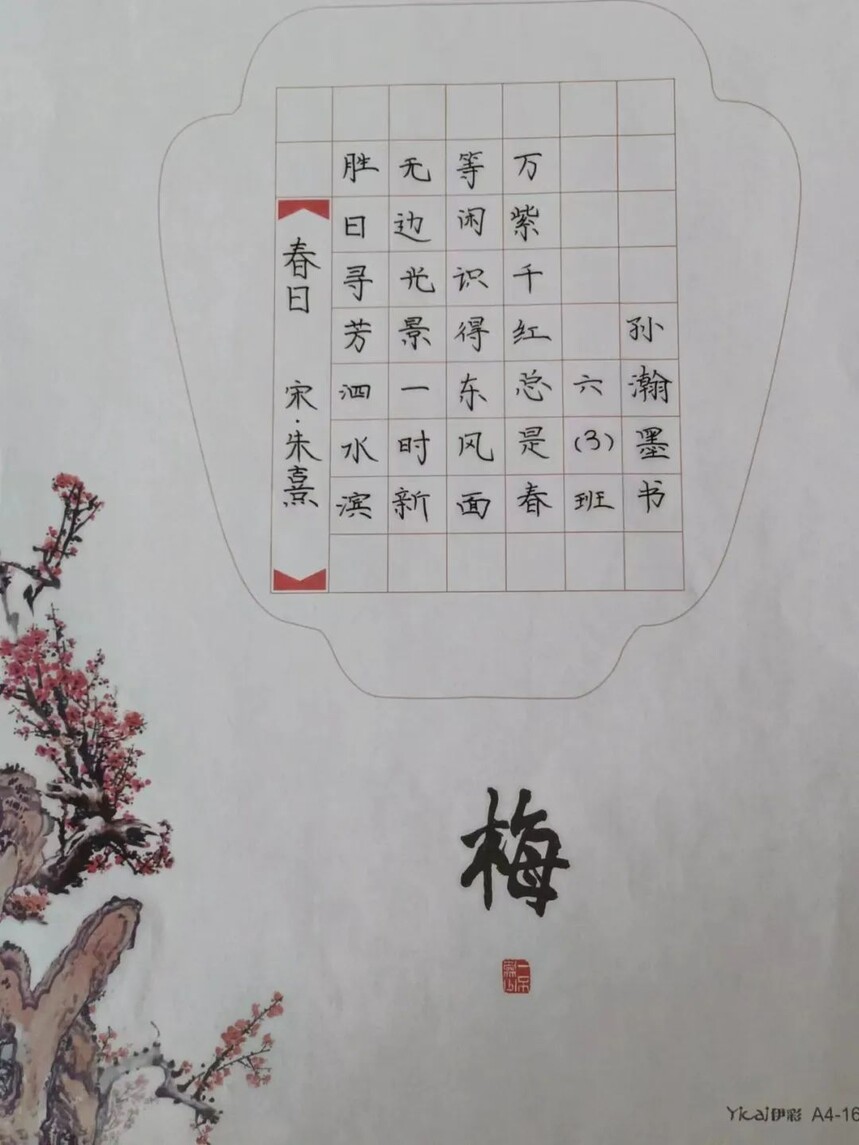 春日 宋·朱熹
胜日寻芳泗水滨
无边光景一时新
等闲识得东风面
万紫千红总是春
六(3)班
孙瀚墨书
梅
Yicai伊彩 A4-16